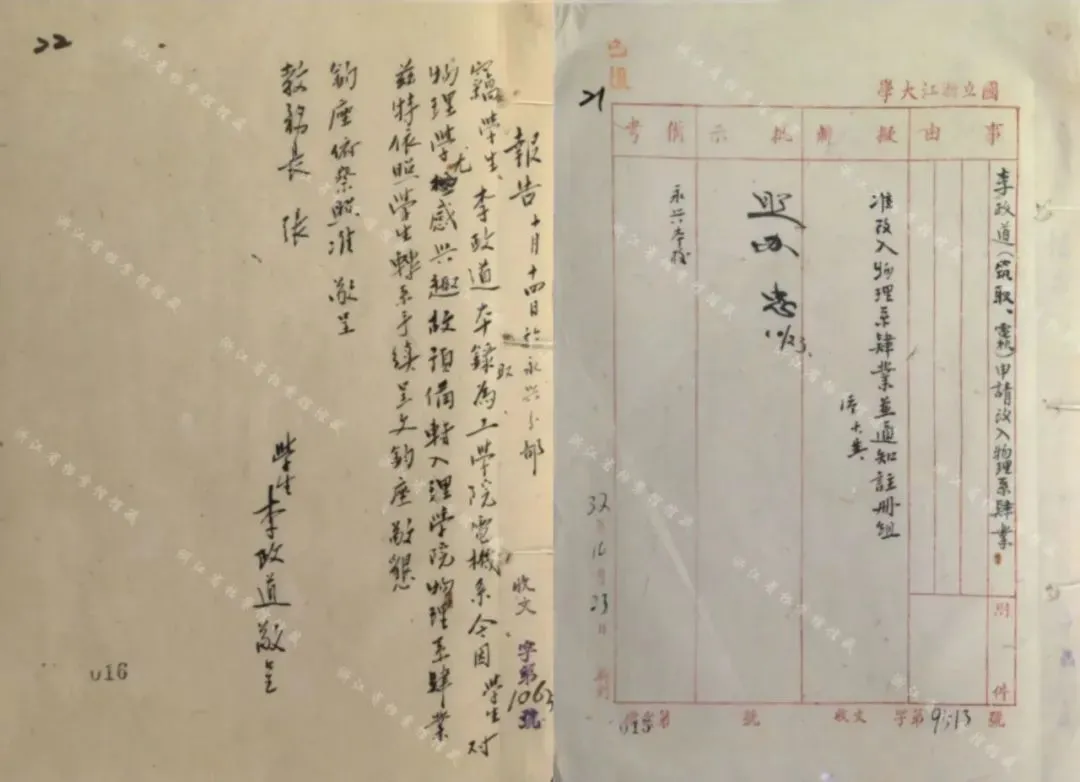 22
報告 十月十四日於永興分部
竊學生李政道本錄取為工學院電機系今因學生對
物理學尤感興趣故預備轉入理學院物理系肄業
茲特依照學生轉系手續呈文鈞座敬懇
鈞座俯察照准 敬呈
教務長 張
學生 李政道敬呈
收文 字第1063號
016
21
國立浙江大學
事由
擬辦
批示
備考
李政道(電機)申請改入物理系肄業
准改入物理系肄業並通知註冊組
照办
10/23
永興本檔
附件
32年10月23日
收文 字第 號
浙江省档案馆馆藏